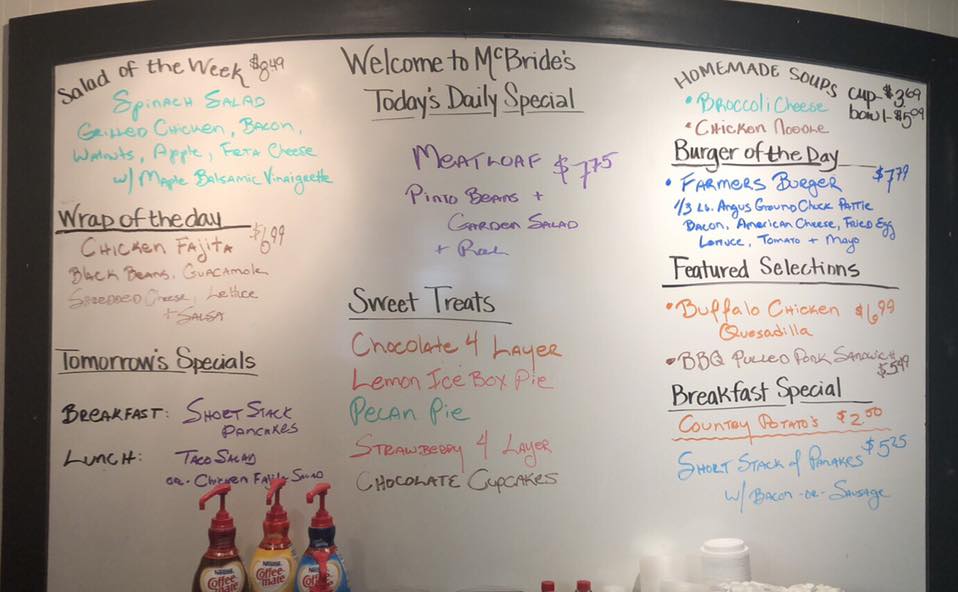 Salad of the Week $8.49
Spinach Salad
Grilled Chicken, Bacon,
Walnuts, Apple, Feta Cheese
w/ Maple Balsamic Vinaigeette
Wrap of the day
Chicken Fajita $6.99
Black Beans, Guacamole
Shredded Cheese, Lettice
+ Salsa
Tomorrow's Specials
Breakfast: Short Stack
Pancakes
Lunch: Taco Salad
or. Chicken Fajita Salad
Welcome to McBride's
Today's Daily Special
Meatloaf $7.75
Pinto Beans +
Garden Salad
+ Roll
Sweet Treats
Chocolate 4 Layer
Lemon Ice Box Pie
Pecan Pie
Strawberry 4 Layer
Chocolate Cupcakes
Homemade Soups cup-$3.69
bowl-$5.09
• Broccoli Cheese
• Chicken Noodle
Burger of the Day
• Farmers Burger $7.79
1/3 Lb. Angus Ground Chuck Pattie
Bacon, American Cheese, Fried Egg
Lettuce, Tomato + Mayo
Featured Selections
• Buffalo Chicken $6.99
Quesadilla
• BBQ Pulled Pork Sandwich
$5.49
Breakfast Special
Country Potato's $2.50
Short Stack of Panakes $5.25
w/ Bacon -or- Sausage
Nestle Coffee-mate
Nestle Coffee-mate
Nestle Coffee-mate